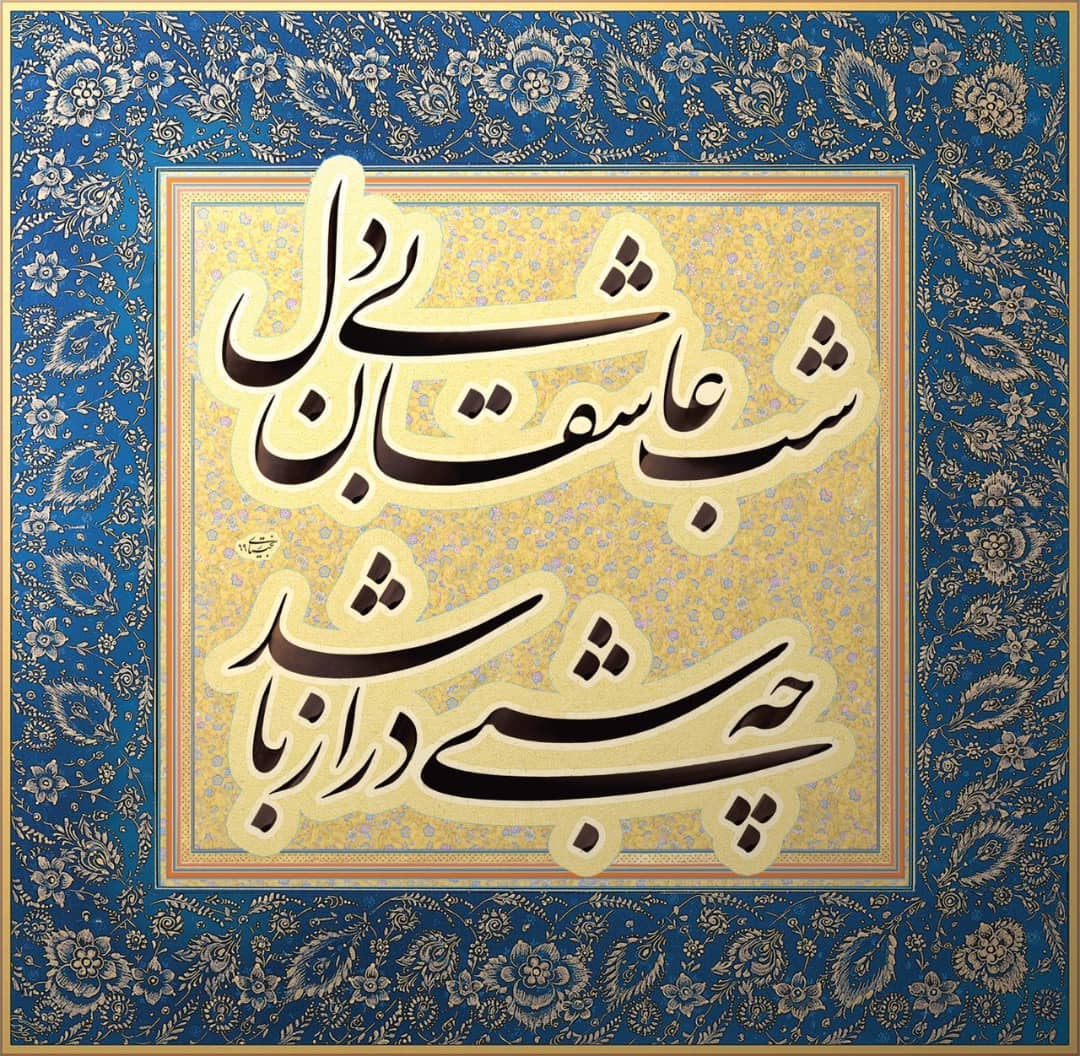 شب عاشقان بی دل
چه شبی دراز باشد